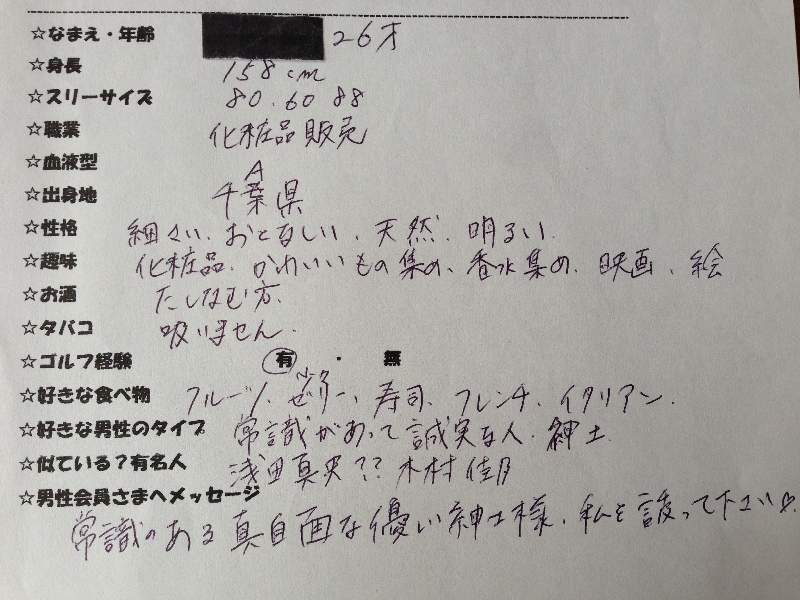 ☆なまえ・年齢 26才
☆身長 158cm
☆スリーサイズ 80.60 88
☆職業 化粧品販売
☆血液型 A
☆出身地 千葉県
☆性格 細かい、おとなしい、天然、明るい
☆趣味 化粧品、かわいいもの集め、香水集め、映画、絵
☆お酒 たしなむ方、
☆タバコ 吸いません.
☆ゴルフ経験 有 ・ 無
☆好きな食べ物 フルーツ、ゼリー、寿司、フレンチ、イタリアン.
☆好きな男性のタイプ 常識があって誠実な人、紳士
☆似ている?有名人 浅田真央?? 木村佳乃
☆男性会員さまへメッセージ
常識のある真面目な優しい紳士様、私を護って下さい♡.